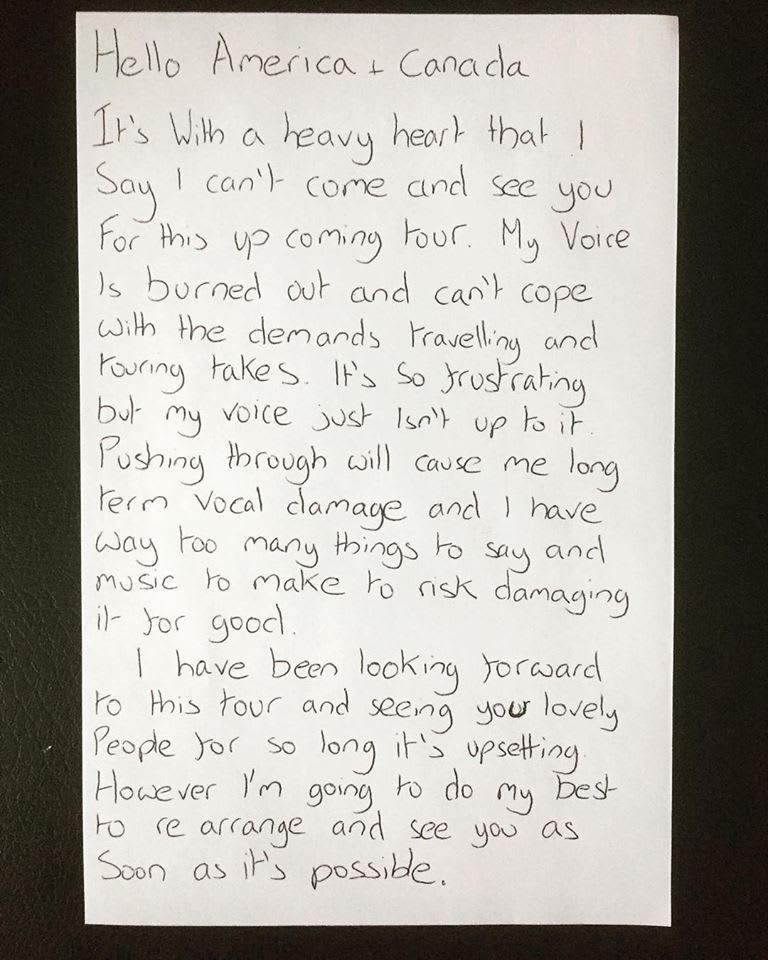 Hello America + Canada
It's With a heavy heart that I
Say I can't come and see you
For this up coming tour. My Voice
Is burned out and can't cope
with the demands travelling and
touring takes. It's so frustrating
but my voice just Isn't up to it.
Pushing through will cause me long
term vocal damage and I have
way too many things to say and
music to make to risk damaging
it for good.
I have been looking forward
to this tour and seeing your lovely
People for so long it's upsetting.
However I'm going to do my best
to re arrange and see you as
Soon as it's possible.